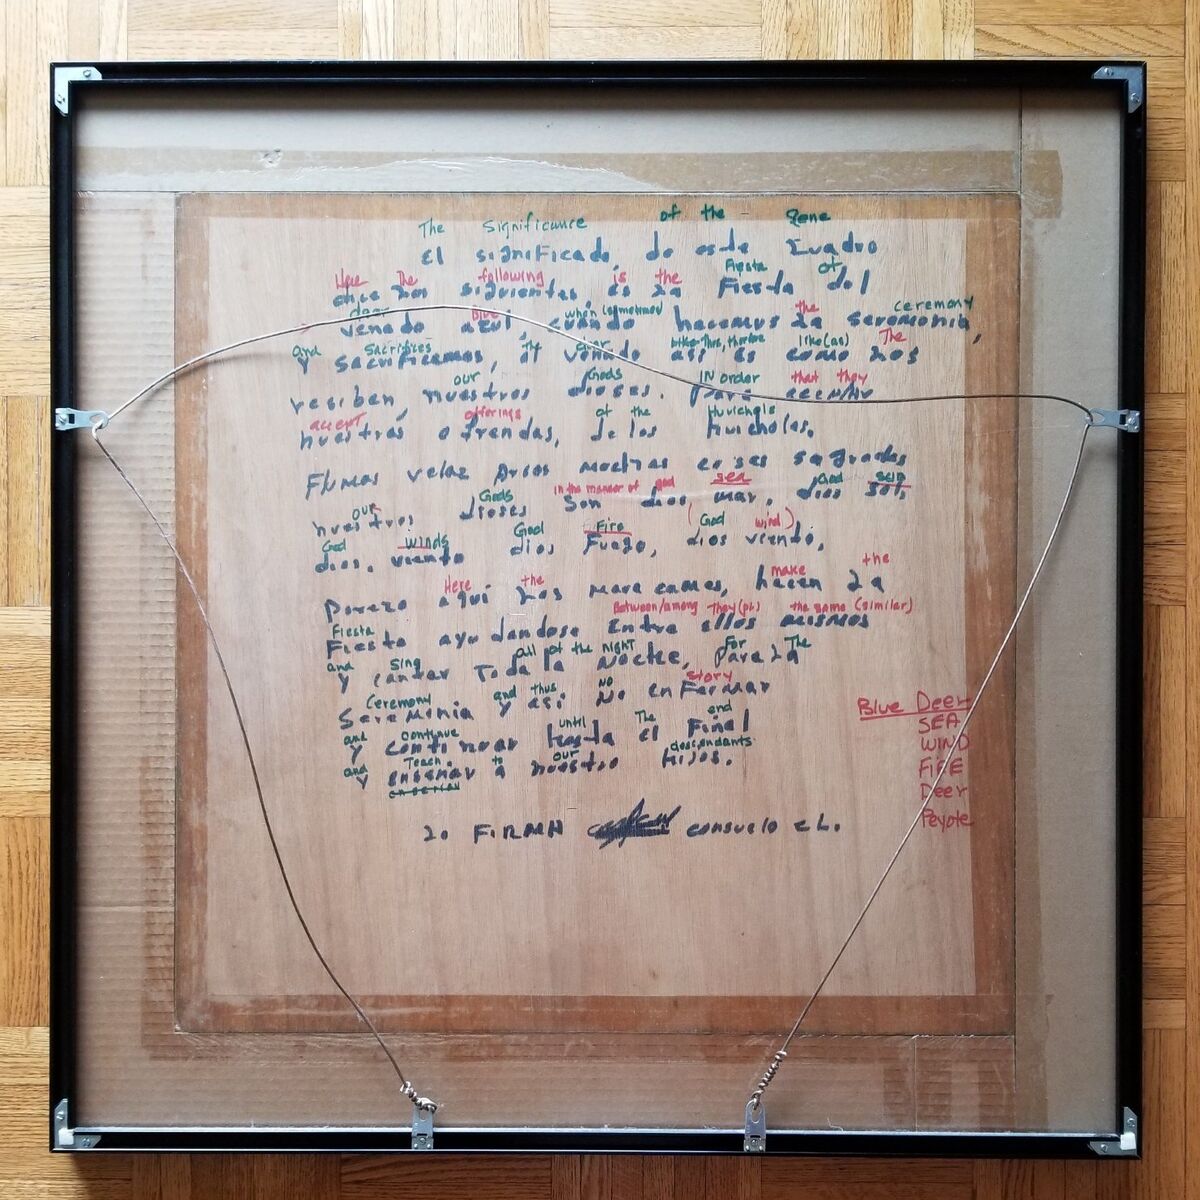 The Significance of the Sene
El significado, de este Cuadro
Here The following is the Fiesta of
dice los siguientes, es La Fiesta del
deer Blue when (sometimes) the ceremony
venado azul, cuando hacemos La Seremonia,
and sacrifices The deer like this, therefore like (as) The
y sacrificamos, al venado asi es como Los
our Gods IN order that they
reciben, nuestros dioses. Para
accept offerings of the Huichols
nuestras ofrendas, de los huicholes.
Flumas velas muchas cosas sagradas
Gods in the manner of god sea God sun
nuestros dioses Son dios mar. dios Sol,
our
God winds God Fire (God wind)
dios. viento dios Fuego, dios viento,
Here the make the
aqui Los mara cames, hacen La
Fiesta Between/among They (pl) the same (similar)
Fiesta ayudandose entre ellos mismos
and sing all of the night For The
y cantar Toda la Noche, para La
Ceremony and thus no story
Seremonia y asi. No enFermar
and continue until The end
y continuar hasta el Final
and Teach. to our descendants
y ensenar a nuestro hijos.
Blue Deer
SEA
WIND
FIRE
Deer
Peyote
Lo FIRMAN consuelo c L.